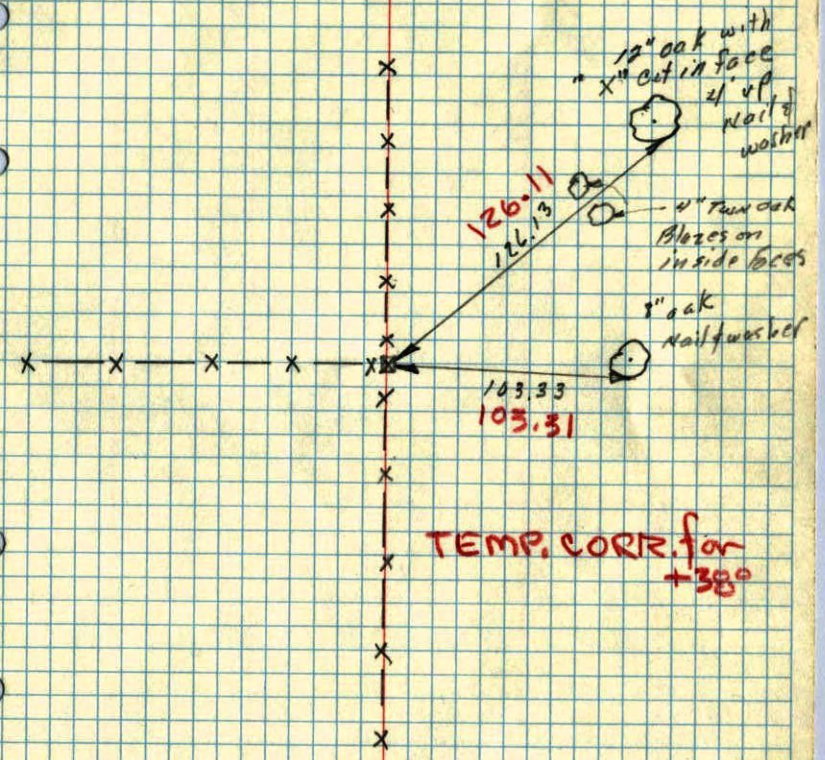 12" oak with
"X" cut in face
4' up
Nail &
washer
126.11
126.13
4" Twin oak
Blazes on
inside faces
8" oak
Nail & washer
103.33
103.31
TEMP. CORR. for
+38°